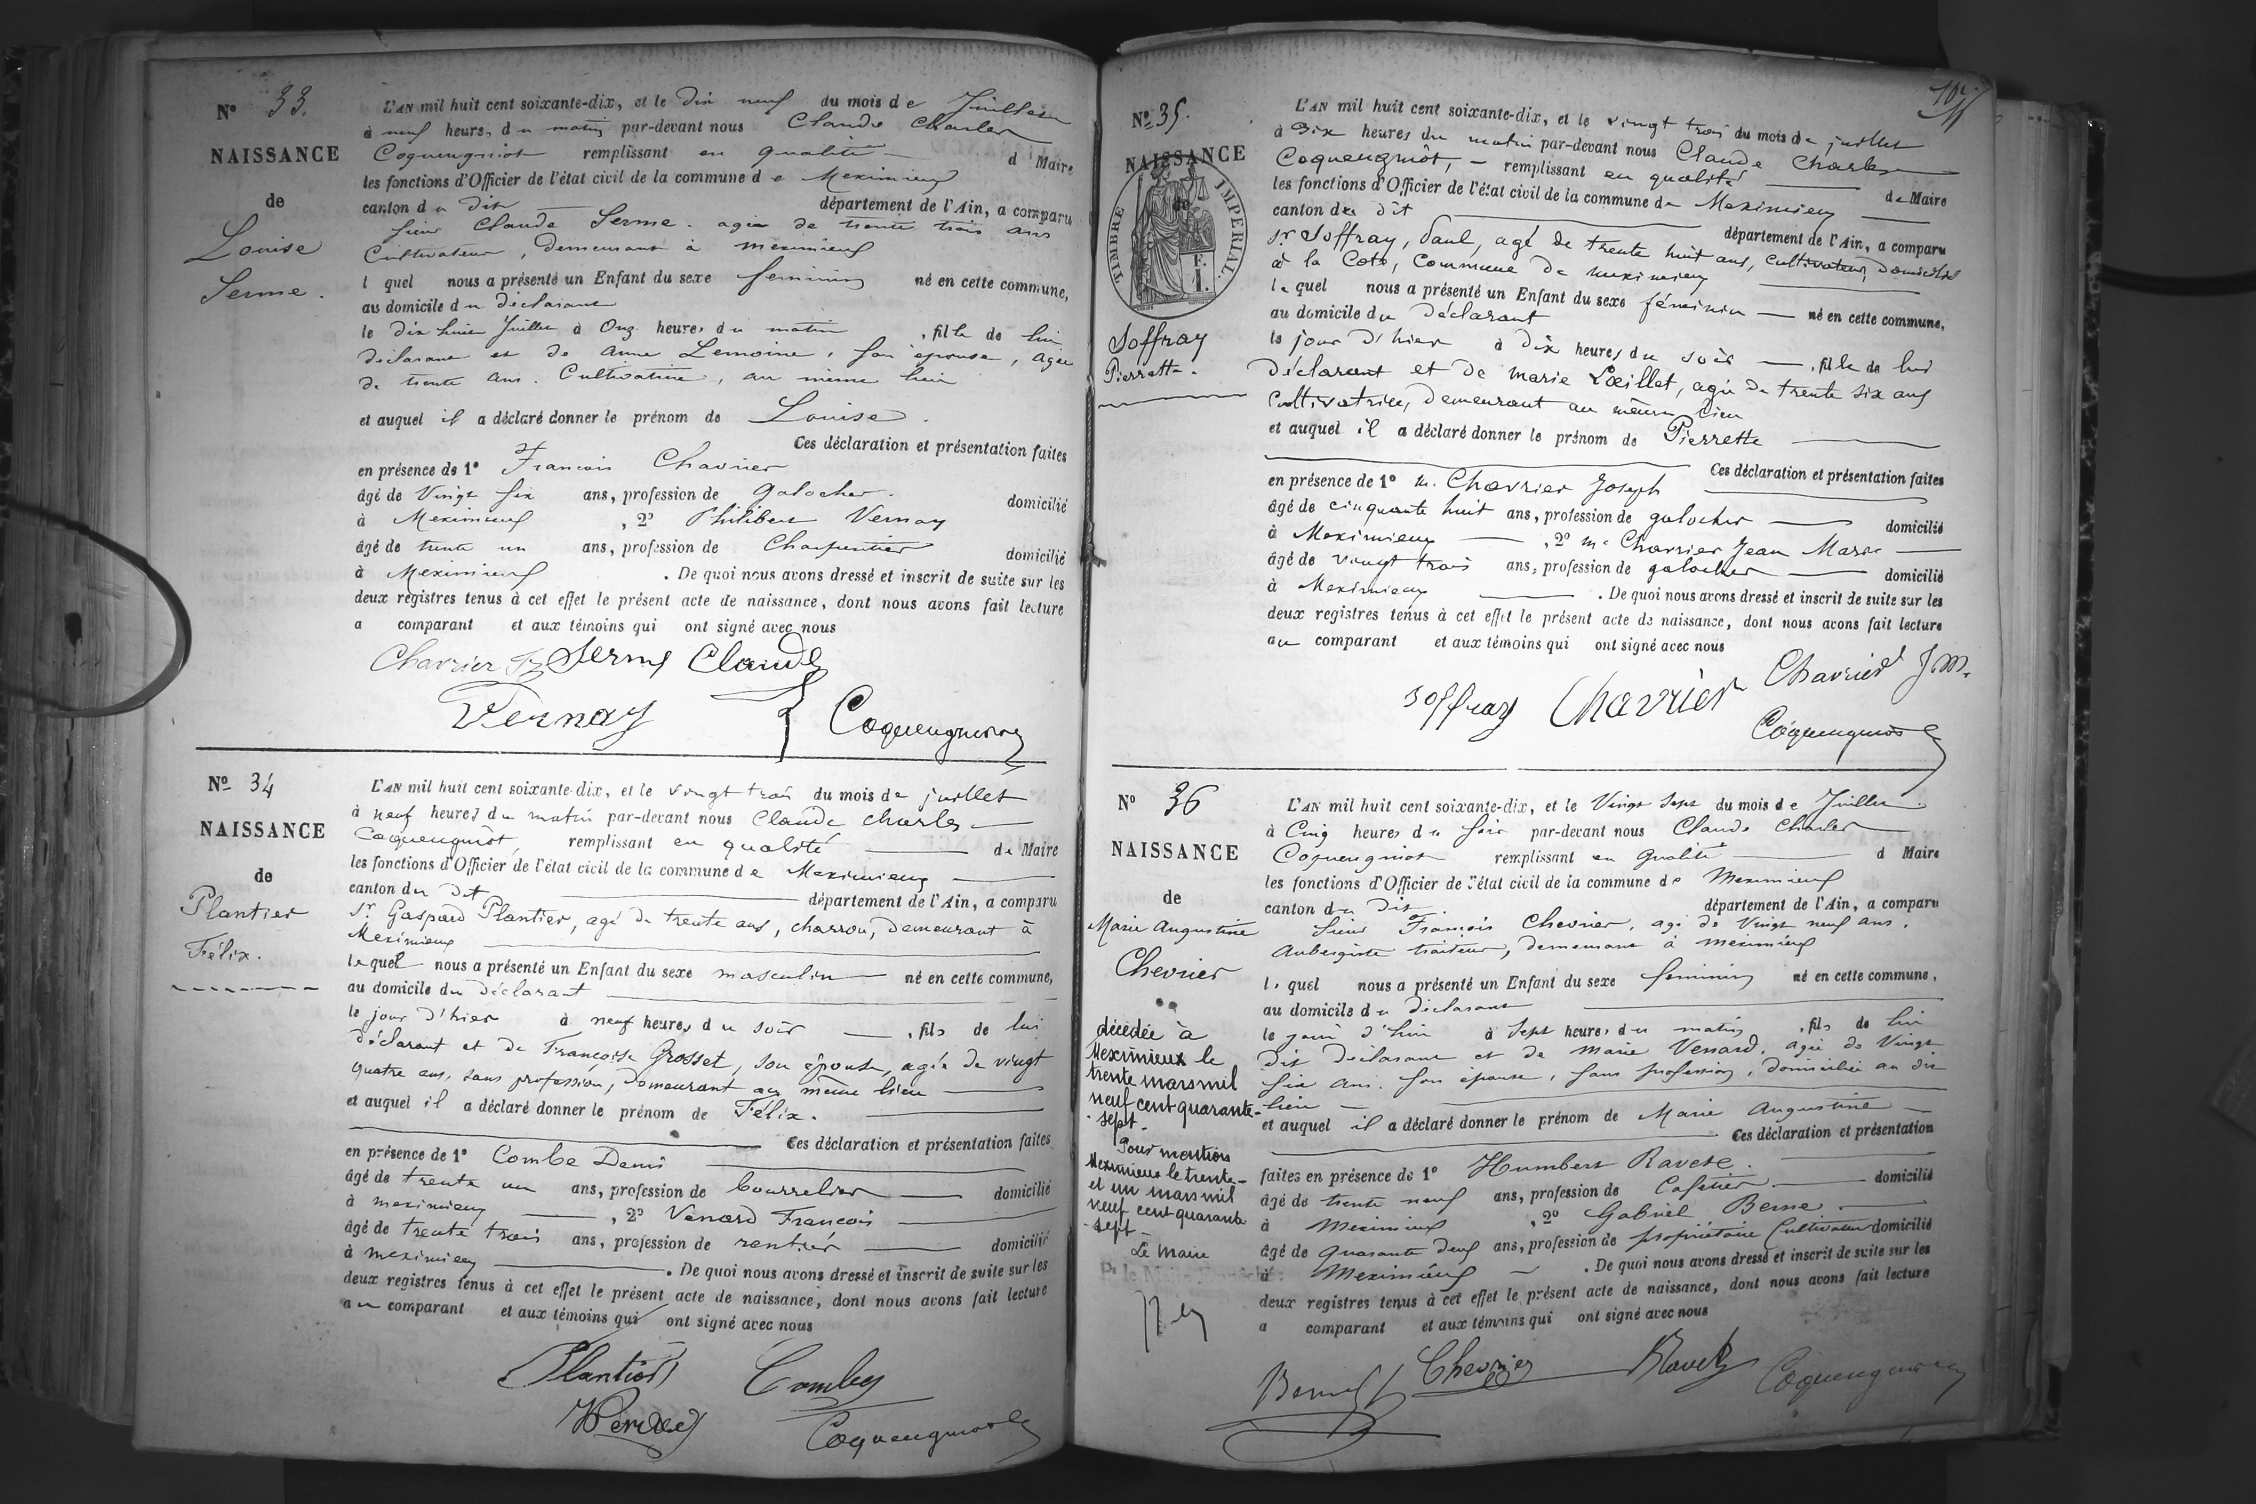 N° 33.
NAISSANCE
de
Louise
Serme.
L'AN mil huit cent soixante-dix, et le dix neuf du mois de Juillet
à neuf heures du matin par-devant nous Claude Charles
Coquengniot remplissant en qualité d Maire
les fonctions d'Officier de l'état civil de la commune de Meximieux
canton du dit département de l'Ain, a comparu
sieur Claude Serme. agé de trente trois ans
Cultivateur, demeurant à meximieux
l quel nous a présenté un Enfant du sexe feminin né en cette commune,
au domicile du déclarant
le dix huit Juillet à Onz heures du matin, fille de lui
déclarant et de Anne Lemoine, son épouse, agée
de trente ans. Cultivatrice, au même lieu
et auquel il a déclaré donner le prénom de Louise.
Ces déclaration et présentation faites
en présence de 1° Francois Chavrier
âgé de Vingt six ans, profession de Galocher. domicilié
à Meximieux, 2° Philibert Vernay
âgé de trente un ans, profession de Charpentier domicilié
à Meximieux. De quoi nous avons dressé et inscrit de suite sur les
deux registres tenus à cet effet le présent acte de naissance, dont nous avons fait lecture
a comparant et aux témoins qui ont signé avec nous
Chavrier Serme Claude
Vernay Coquengniot
N° 34
NAISSANCE
de
Plantier
Félix.
L'AN mil huit cent soixante-dix, et le vingt trois du mois de juillet
à neuf heures du matin par-devant nous Claude Charles
Coquengniot, remplissant en qualité de Maire
les fonctions d'Officier de l'état civil de la commune de Meximieux
canton du dit département de l'Ain, a comparu
Sr Gaspard Plantier, agé de trente ans, charron, demeurant à
Meximieux
lequel nous a présenté un Enfant du sexe masculin né en cette commune,
au domicile du déclarant
le jour d'hier à neuf heures du soir, fils de lui
déclarant et de Françoise Grosset, son épouse, agée de vingt
quatre ans, sans profession, demeurant au même lieu
et auquel il a déclaré donner le prénom de Félix.
Ces déclaration et présentation faites
en présence de 1° Combe Denis
âgé de trente un ans, profession de bourrelier domicilié
à meximieux, 2° Venard Francois
âgé de trente trois ans, profession de rentier domicilié
à meximieux. De quoi nous avons dressé et inscrit de suite sur les
deux registres tenus à cet effet le présent acte de naissance, dont nous avons fait lecture
au comparant et aux témoins qui ont signé avec nous
Plantier Combe
Coquengniot
N° 35.
NAISSANCE
de
TIMBRE IMPERIAL.
Soffray
Pierrette.
L'AN mil huit cent soixante-dix, et le vingt trois du mois de juillet
à dix heures du matin par-devant nous Claude Charles
Coquengniot, remplissant en qualité de Maire
les fonctions d'Officier de l'état civil de la commune de Meximieux
canton du dit département de l'Ain, a comparu
Sr Soffray, Paul, agé de trente huit ans, cultivateur, domicilié
à la Cote, Commune de meximieux
lequel nous a présenté un Enfant du sexe féminin né en cette commune,
au domicile du déclarant
le jour d'hier à dix heures du soir, fille de lui
déclarant et de marie Lœillet, agée de trente six ans
Cultivatrice, demeurant au même lieu
et auquel il a déclaré donner le prénom de Pierrette
Ces déclaration et présentation faites
en présence de 1° m. Chavrier Joseph
âgé de cinquante huit ans, profession de galocher domicilié
à Meximieux, 2° mr Chavrier Jean Marie
âgé de vingt trois ans, profession de galocher domicilié
à Meximieux. De quoi nous avons dressé et inscrit de suite sur les
deux registres tenus à cet effet le présent acte de naissance, dont nous avons fait lecture
au comparant et aux témoins qui ont signé avec nous
Soffray Chavrier Chavrier J.M.
Coquengniot
N° 36
NAISSANCE
de
Marie Augustine
Chevrier
décédée à
Meximieux le
trente mars mil
neuf cent quarante-
sept.
Pour mention
Meximieux le trente-
et un mars mil
neuf cent quarante
-sept
Le Maire
L'AN mil huit cent soixante-dix, et le Vingt Sept du mois de Juillet.
à Cinq heures du soir par-devant nous Claude Charles
Coquengniot remplissant en qualité d Maire
les fonctions d'Officier de l'état civil de la commune de Meximieux
canton du dit département de l'Ain, a comparu
sieur François Chevrier, agé de Vingt neuf ans,
Aubergiste traiteur, demeurant à meximieux
le quel nous a présenté un Enfant du sexe feminin né en cette commune,
au domicile du déclarant
le jour d'hier à Sept heures du matin, fils de lui
dit déclarant et de Marie Venard, agée de Vingt
six ans. son épouse, sans profession, domiciliée au dit
lieu
et auquel il a déclaré donner le prénom de Marie Augustine
Ces déclaration et présentation
faites en présence de 1° Humbert Ravete. domicilié
âgé de trente neuf ans, profession de Cafetier.
à Meximieux, 2° Gabriel Berne
âgé de quarante deux ans, profession de propriétaire Cultivateur domicilié
à Meximieux. De quoi nous avons dressé et inscrit de suite sur les
deux registres tenus à cet effet le présent acte de naissance, dont nous avons fait lecture
a comparant et aux témoins qui ont signé avec nous
Berne Chevrier Coquengniot